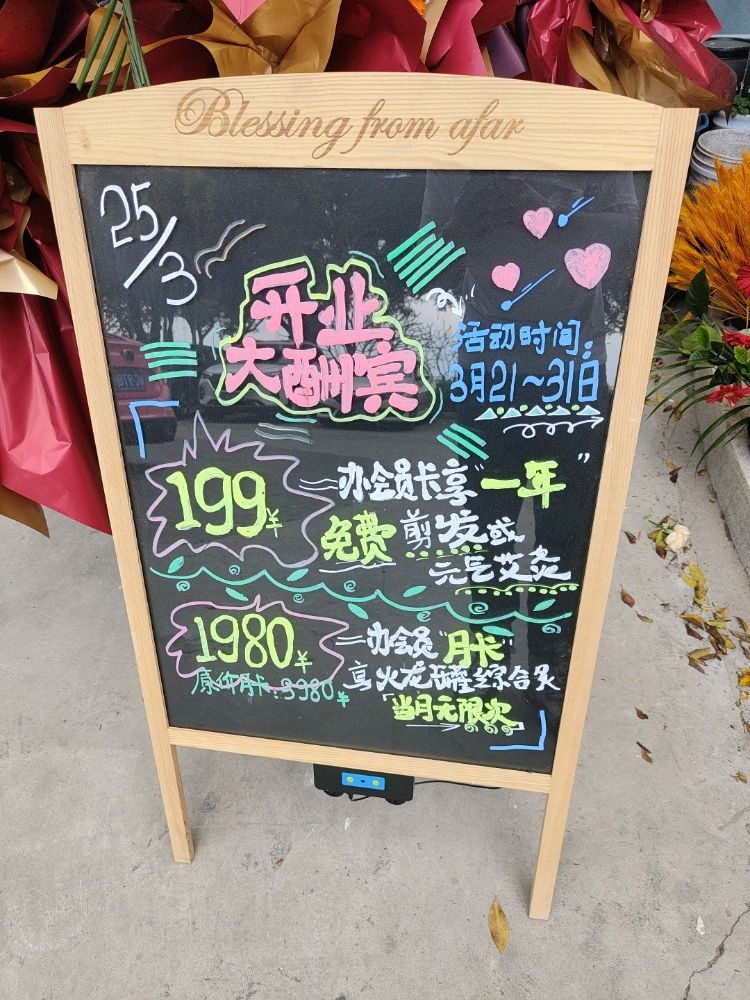 Blessing from afar
25/3
开业
大酬宾
活动时间:
3月21~31日
199¥
办会员卡享"一年"
免费剪发或
元气艾灸
1980¥
办会员"月卡"
原价月卡:3980¥
享火龙 综合灸
「当月无限次